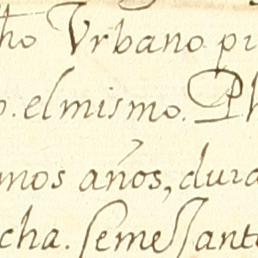 ho Vrbano pi
o. elmismo. Ph
mos años, dura
cha. semessant